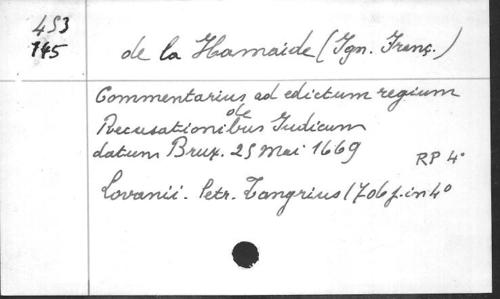 453
145
de la Hamaide (Ign. Franç.)
Commentarius ad edictum regium
de
Recusationibus Judicum
datum Brux. 25 Mai 1669
RP 4°
Lovanii. Petr. Zangrius 1706 f. in 4°